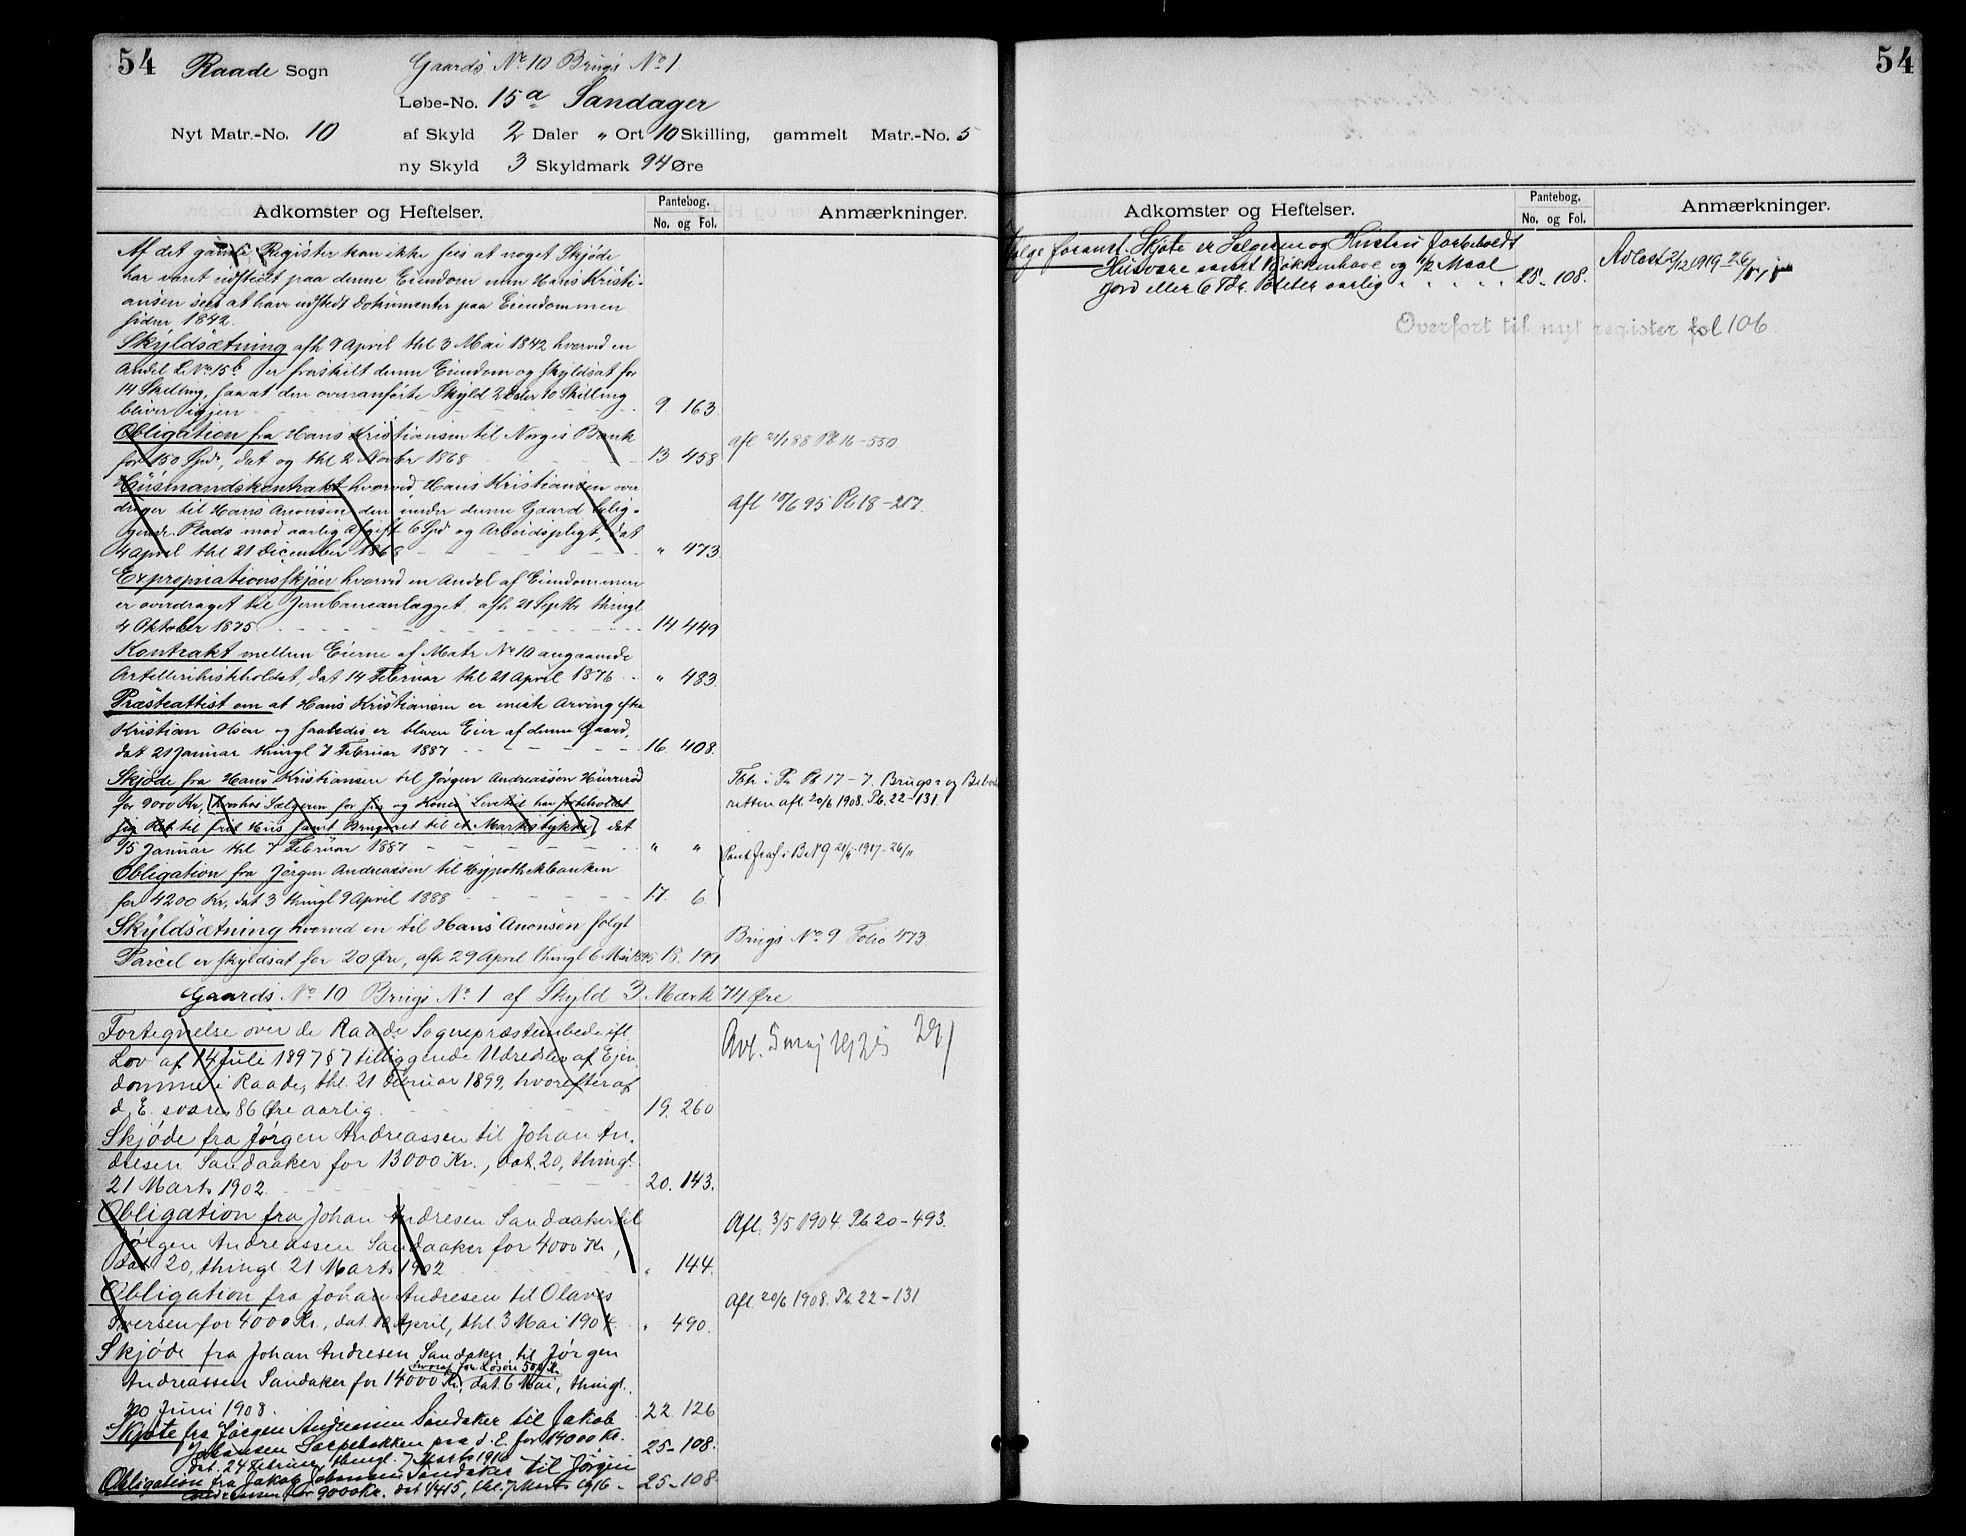 54
Raade Sogn
Gaards No 10 Brugs No 1
Løbe-No. 15a Sandager
Nyt Matr.-No. 10 af Skyld 2 Daler " Ort 10 Skilling, gammelt Matr.-No. 5
ny Skyld 3 Skyldmark 94 Øre
Adkomster og Heftelser. Pantebog. No. og Fol. Anmærkninger.
Af det gamle Register kan ikke sees at noget Skjøde
har været udstedt paa denne Eiendom men Hans Kristi-
ansen sees at have udstedt Dokumenter paa Eiendommen
siden 1842.
Skyldsætning afh 9 April thl 3 Mai 1842 hvorved en
Andel L No 15b er fraskilt denne Eiendom og skyldsat for
14 Skilling, saa at den ovenanførte Skyld 2 Daler 10 Skilling
bliver igjen 9. 163
Obligation fra Hans Kristiansen til Norges Bank
for 150 Spd, dat og thl 2 Novbr 1868 13 458 afl 21/1 88 Pb 16-550
Husmandskontrakt hvorved Hans Kristiansen over
drager til Hans Anonsen den under denne Gaard belig-
gende Plads mod aarlig Afgift 6 Spd og Arbeidspligt, dat
4 April thl 21 December 1868 " 473. Afl 10/6 95 Pb 18-217.
Expropriationsskjøn hvorved en Andel af Eiendommen
er overdraget til Jernbaneanlægget, afh 21 Septbr thingl
4 Oktober 1875. 14 449
Kontrakt mellem Eierne af Matr No 10 angaaende
Artillerihestholdet, dat 14 Februar thl 21 April 1876 " 483.
Præsteattest om at Hans Kristiansen er eneste Arving efter
Kristian Olsen og saaledes er bleven Eier af denne Gaard,
dat 21 Januar thingl 7 Februar 1887 16. 408.
Skjøde fra Hans Kristiansen til Jørgen Andreassen Hurrerød
for 9000 Kr, (hvorhos Sælgeren for sig og Kones Levetid har forbeholdt
sig Ret til frit Hus samt Brugsret til et Markstykke), dat
15 Januar thl 7 Februar 1887 " "
Tbtr i Pr Pb 17-7. Brugs- og Bebo
retten afl 20/6 1908. Pb. 22-131.
Obligation fra Jørgen Andreassen til Hypothekbanken
for 4200 Kr, dat 3 thingl 9 April 1888 17. 6.
Pant fraf i B N 9 21/11-1917-26/11
Skyldsætning hvorved en til Hans Anonsen solgt
Parcel er skyldsat for 20 Øre, afh 29 April thingl 6 Mai 1895 18. 191 Brugs No 9 Folio 473.
Gaards No 10 Brugs No 1 af Skyld 3 Mark 74 Øre
Fortegnelse over de Raade Sognepræstembede ifl.
Lov af 14 Juli 1897 § 7 tilliggende Udredsler af Ejen
domme i Raade, thl. 21 Februar 1899, hvorefter af
d. E. svares 86 Øre aarlig. 19. 260
Skjøde fra Jørgen Andreassen til Johan An-
dresen Sandaaker for 13000 Kr., dat. 20, thingl.
21 Marts 1902. 20. 143.
Obligation fra Johan Andresen Sandaaker til
Jørgen Andreassen Sandaaker for 4000 Kr,
dat 20, thingl 21 Marts 1902 " 144. Afl. 3/5 1904. Pb 20-493.
Obligation fra Johan Andresen til Olaves
Iversen for 4000 Kr., dat. 10 April, thl. 3 Mai 1904 " 490. Afl. 20/6 1908. Pb. 22-131
Skjøde fra Johan Andresen Sandaker til Jørgen
hvoraf for Løsøre 500 Kr.
Andreassen Sandaker for 14000 Kr., dat. 6 Mai, thingl.
20 Juni 1908. 22. 126
Skjøte fra Jørgen Andreassen Sandaker til Jakob
Johansen Sarpebakken paa d. E. for 14000 Kr.
dat. 24 Februar, thingl. 7 Marts 1916 25-108.
Obligation fra Jakob Johansen Sandaker til Jørgen
Andreassen for 9000 Kr. dat 14/15, thl. 7 Marts 1916 - 25-108
54
Adkomster og Heftelser. Pantebog. No. og Fol. Anmærkninger.
Ifølge foranst. Skjøte er Sælgeren og Hustru forbeholdt
Husvære samt Kjøkkenhave og 1/2 Maal
jord eller 6 Tdr. Poteter aarlig 25-108. Avløst 2/12 1919
Overført til nyt register fol 106.